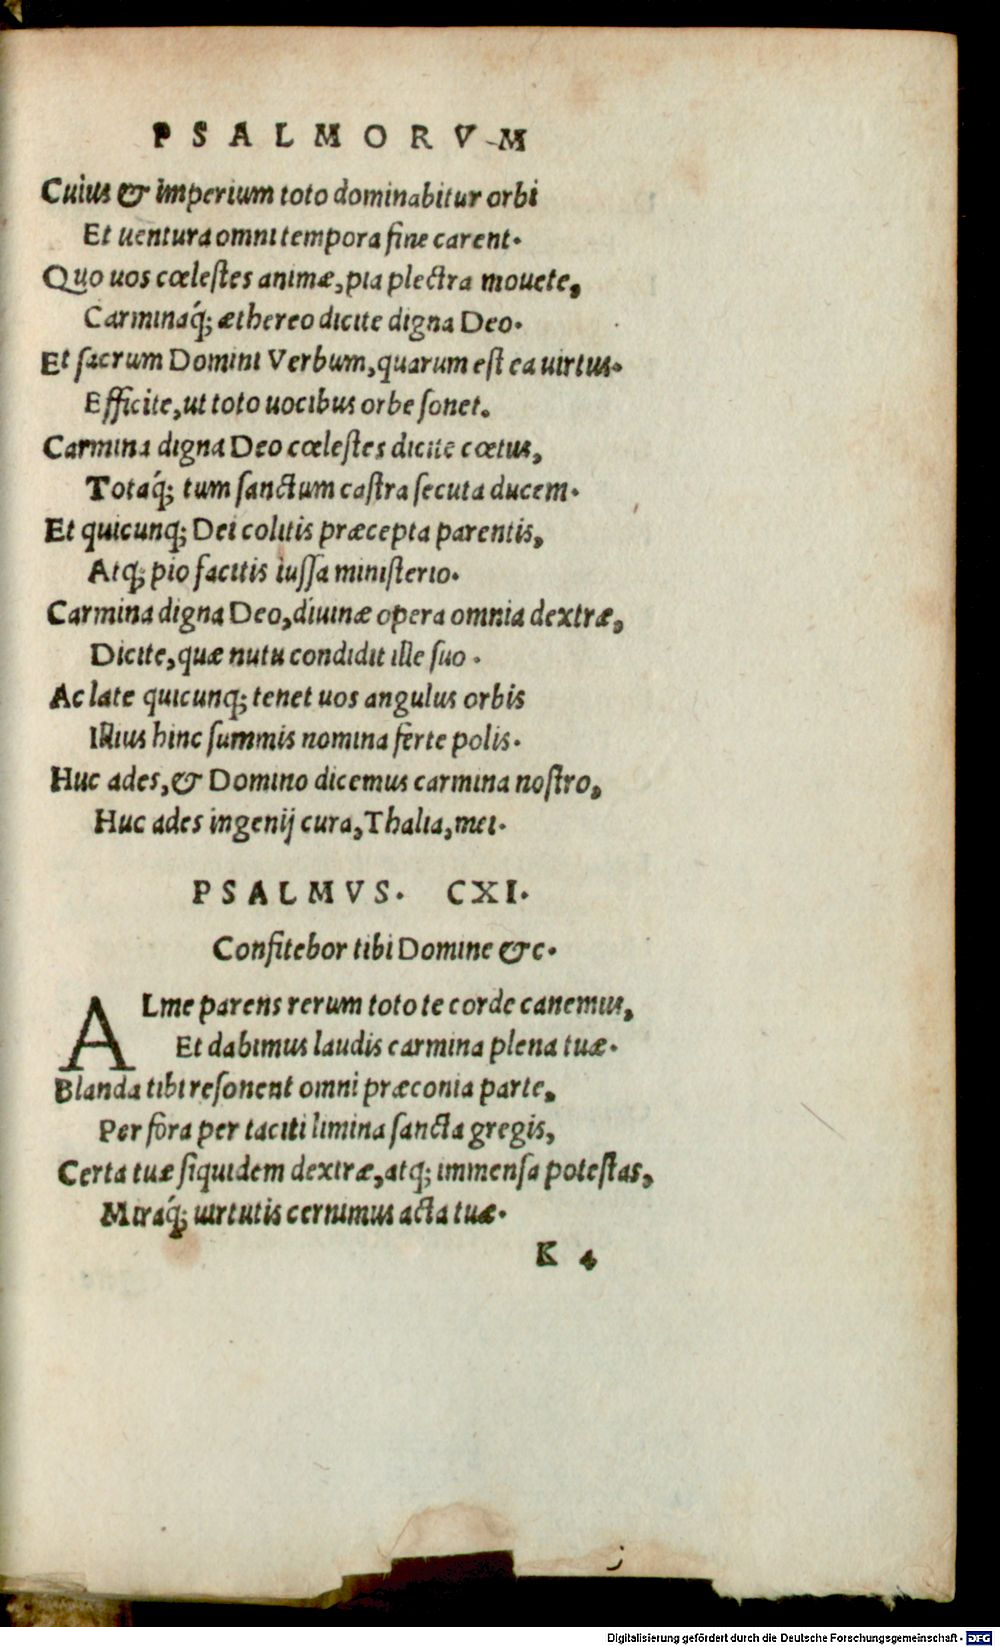 PSALMORVM
Cuius & imperium toto dominabitur orbi
Et uentura omni tempora fine carent.
Quo uos cœlestes animæ, pia plectra mouete,
Carminaq́; æthereo dicite digna Deo.
Et sacrum Domini Verbum, quarum est ea uirtus.
Efficite, ut toto uocibus orbe sonet.
Carmina digna Deo cœlestes dicite cœtus,
Totaq́; tum sanctum castra secuta ducem.
Et quicunq; Dei colitis præcepta parentis,
Atq; pio facitis iussa ministerio.
Carmina digna Deo, diuinæ opera omnia dextræ,
Dicite, quæ nutu condidit ille suo.
Ac late quicunq; tenet uos angulus orbis
Illius hinc summis nomina ferte polis.
Huc ades, & Domino dicemus carmina nostro,
Huc ades ingenij cura, Thalia, mei.
PSALMVS. CXI.
Confitebor tibi Domine &c.
ALme parens rerum toto te corde canemus,
Et dabimus laudis carmina plena tuæ.
Blanda tibi resonent omni præconia parte,
Per fora per taciti limina sancta gregis,
Certa tuæ siquidem dextræ, atq; immensa potestas,
Miraq́; uirtutis cernimus acta tuæ.
K 4
Digitalisierung gefördert durch die Deutsche Forschungsgemeinschaft - DFG